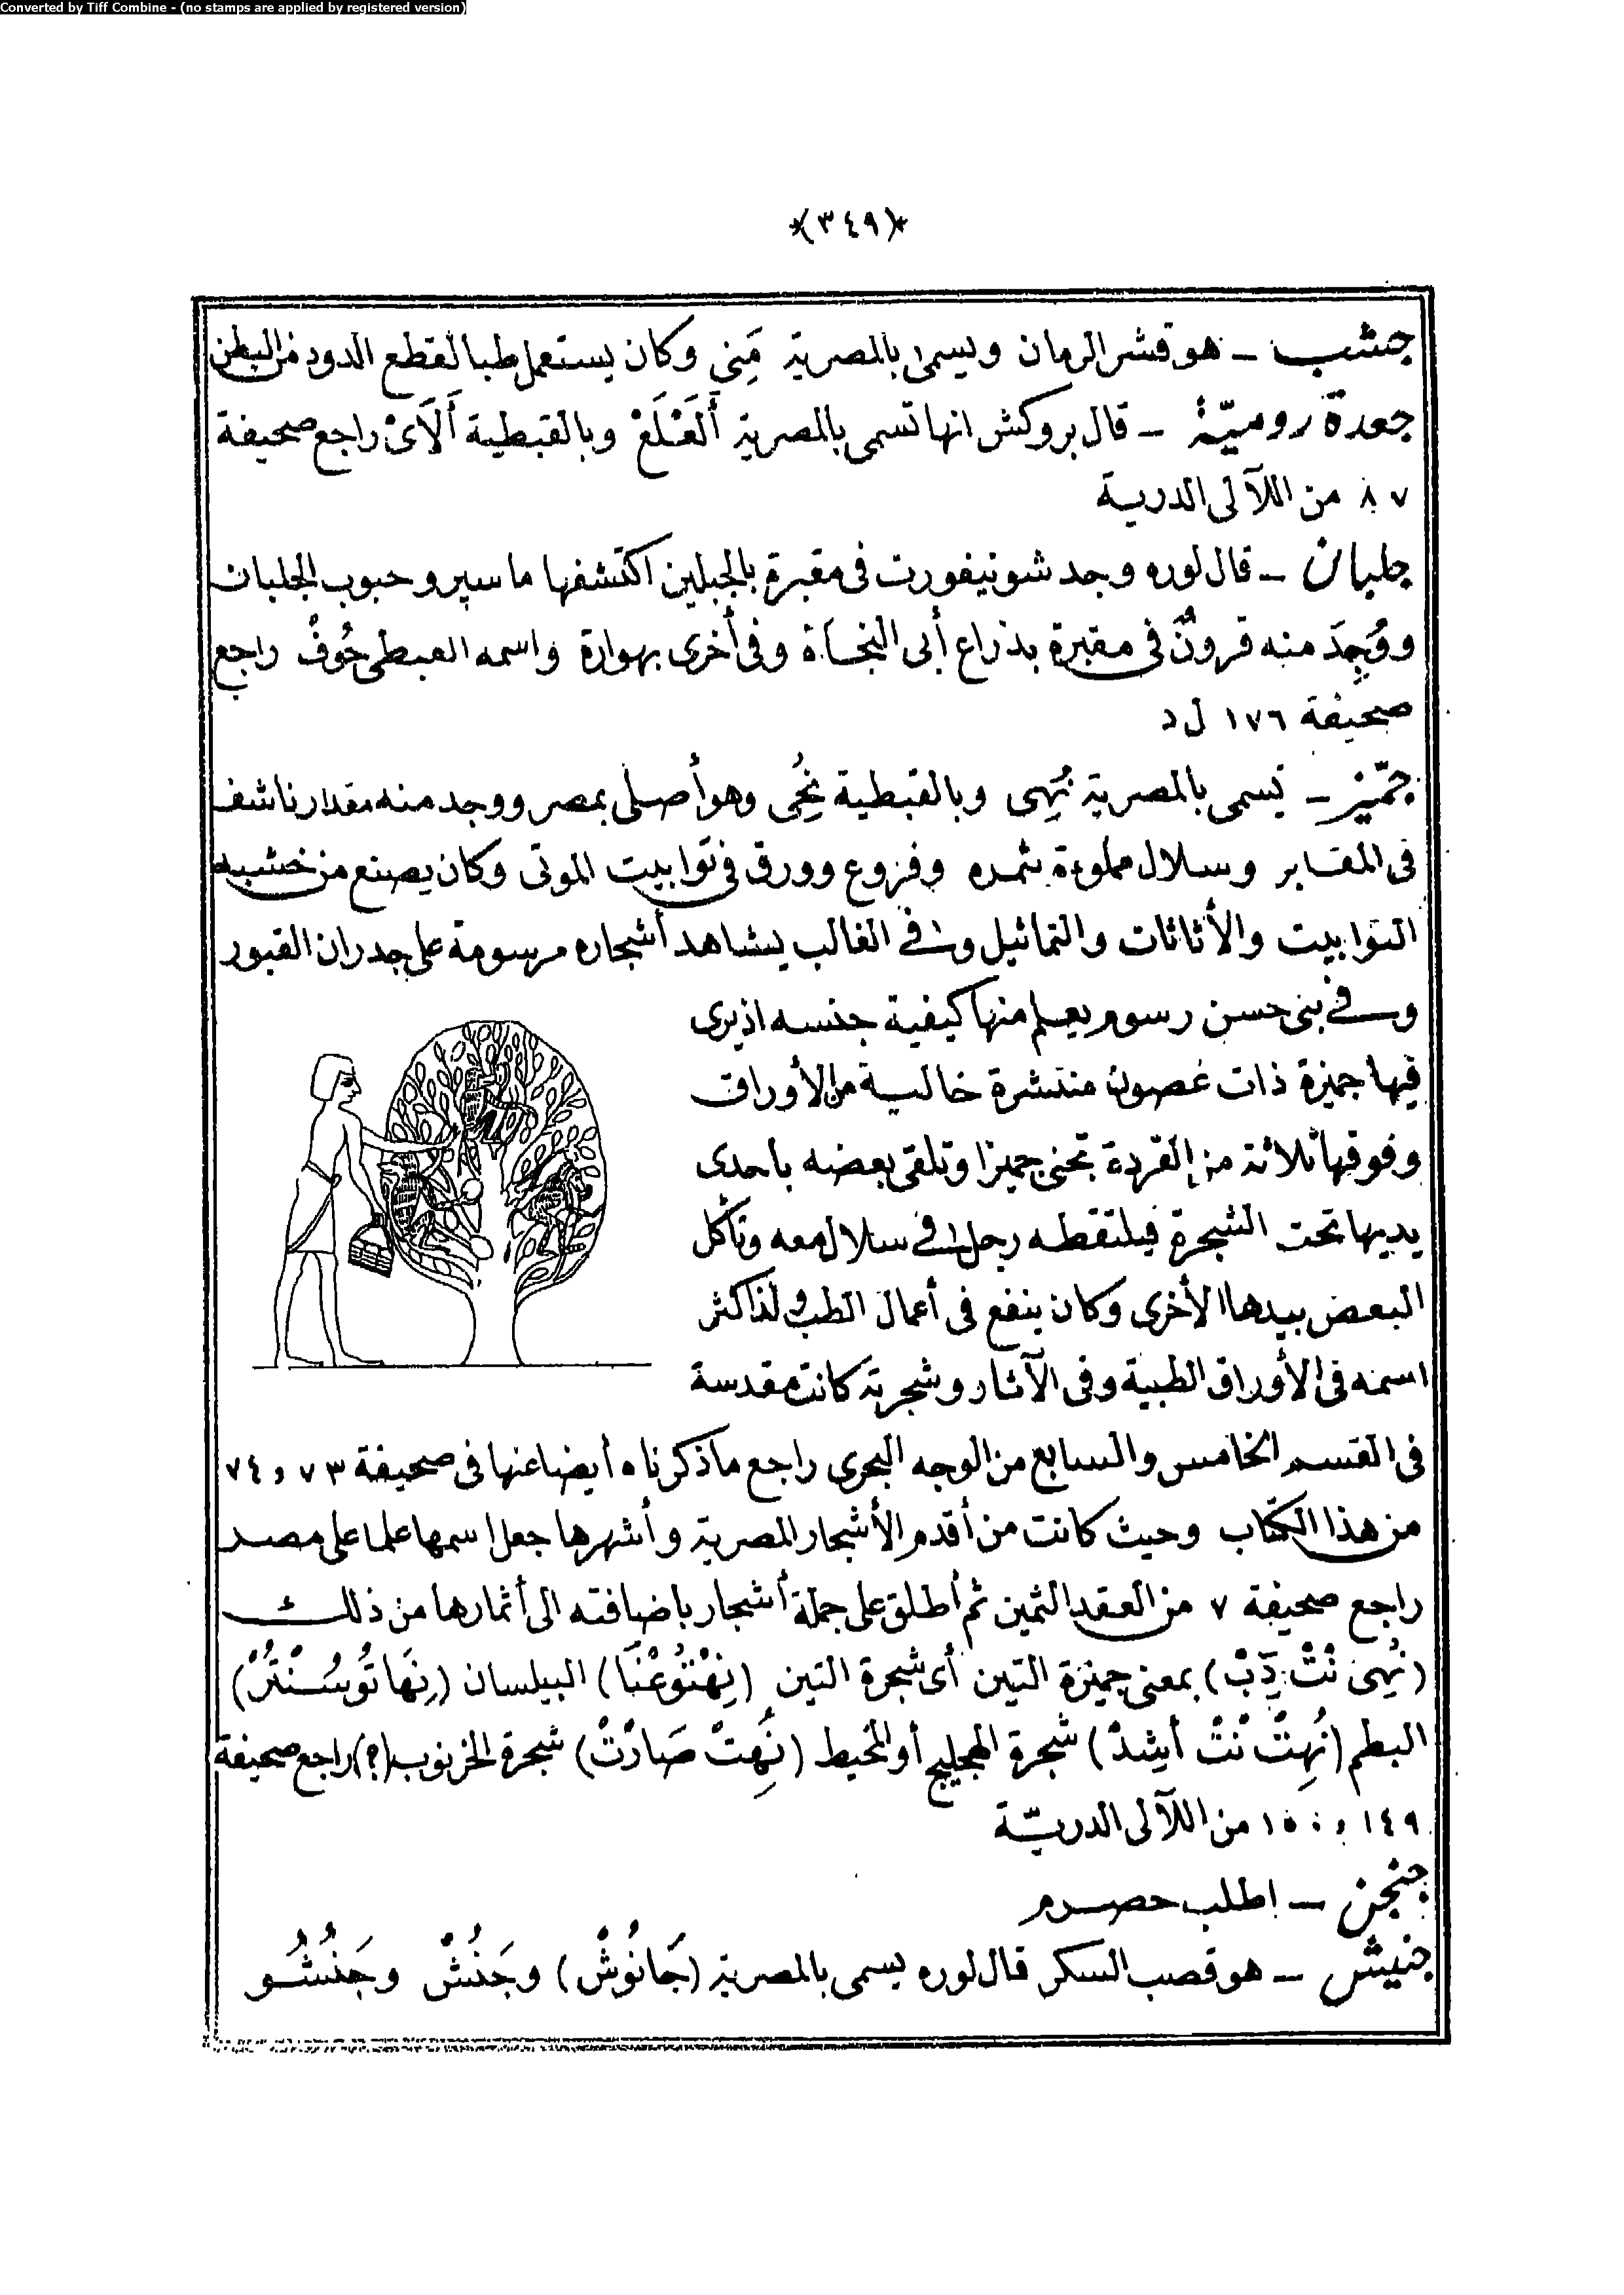 Converted by Tiff Combine - (no stamps are applied by registered version)
*(٣٤٩)*
جشب ــ هو قشر الرمان ويسمى بالمصرية مَنِى وكان يستعمل طبا لقطع الدود من البطن
جعدة روميّة ــ قال بروكش انها تسمى بالمصرية أَلْعَلَعْ وبالقبطية أَلَاىْ راجع صحيفة
٨٧ من اللآلى الدرية
جلبان ــ قال لوره وجد شونيفورت فى مقبرة بالجبلين اكتشفها ماسپرو حبوب الجلبان
ووُجِدَ منه قرونٌ فى مقبرة بذراع أبى النجاة وفى أخرى بهوارة واسمه القبطى حُوفْ راجع
صحيفة ١٧٦ ل د
جمّيز ــ تسمى بالمصرية نُهِى وبالقبطية نُحِى وهو أصلى بمصر ووجد منه مقدار ناشف
فى المقابر وسلال مملوءة بثمره وفروع وورق فى توابيت الموتى وكان يصنع من خشبه
التوابيت والأثاثات والتماثيل وفى الغالب يشاهد أشجاره مرسومة على جدران القبور
وفى بنى حسن رسوم يعلم منها كيفية جنسه اذ يرى
فيها جميزة ذات غصون منتشرة خالية من الأوراق
وفوقها ثلاثة من القردة تجنى جميزا وتلقى بعضه باحدى
يديها تحت الشجرة فيلتقطه رجل فى سلال معه وتأكل
البعض بيدها الأخرى وكان ينفع فى أعمال الطب ولذا كثر
اسمه فى الأوراق الطبية وفى الآثار وشجرته كانت مقدسة
فى القسم الخامس والسابع من الوجه البحرى راجع ما ذكرناه أيضا عنها فى صحيفة ٧٣ و ٧٤
من هذا الكتاب وحيث كانت من أقدم الأشجار المصرية وأشهرها جعل اسمها علما على مصر
راجع صحيفة ٧ من العقد الثمين ثم أطلق على جملة أشجار باضافته الى أثمارها من ذلك
(نُهِى نْتْ دَبْ) بمعنى جميزة التين أى شجرة التين (نِهْتْوُعْنَا) البيلسان (نِهَاتُوسُنْتَرْ)
البطم (نُهِتْ نْتْ أَشِدْ) شجرة الهجليج أو المخيط (نُهِتْ صَارْتْ) شجرة الخرنوب (؟) راجع صحيفة
١٤٩ و ١٥٠ من اللآلى الدريّة
جنجن ــ اطلب حصرم
جنيش ــ هو قصب السكر قال لوره يسمى بالمصرية (جَانُوشْ) وجَنُشْ وجَنُشُو